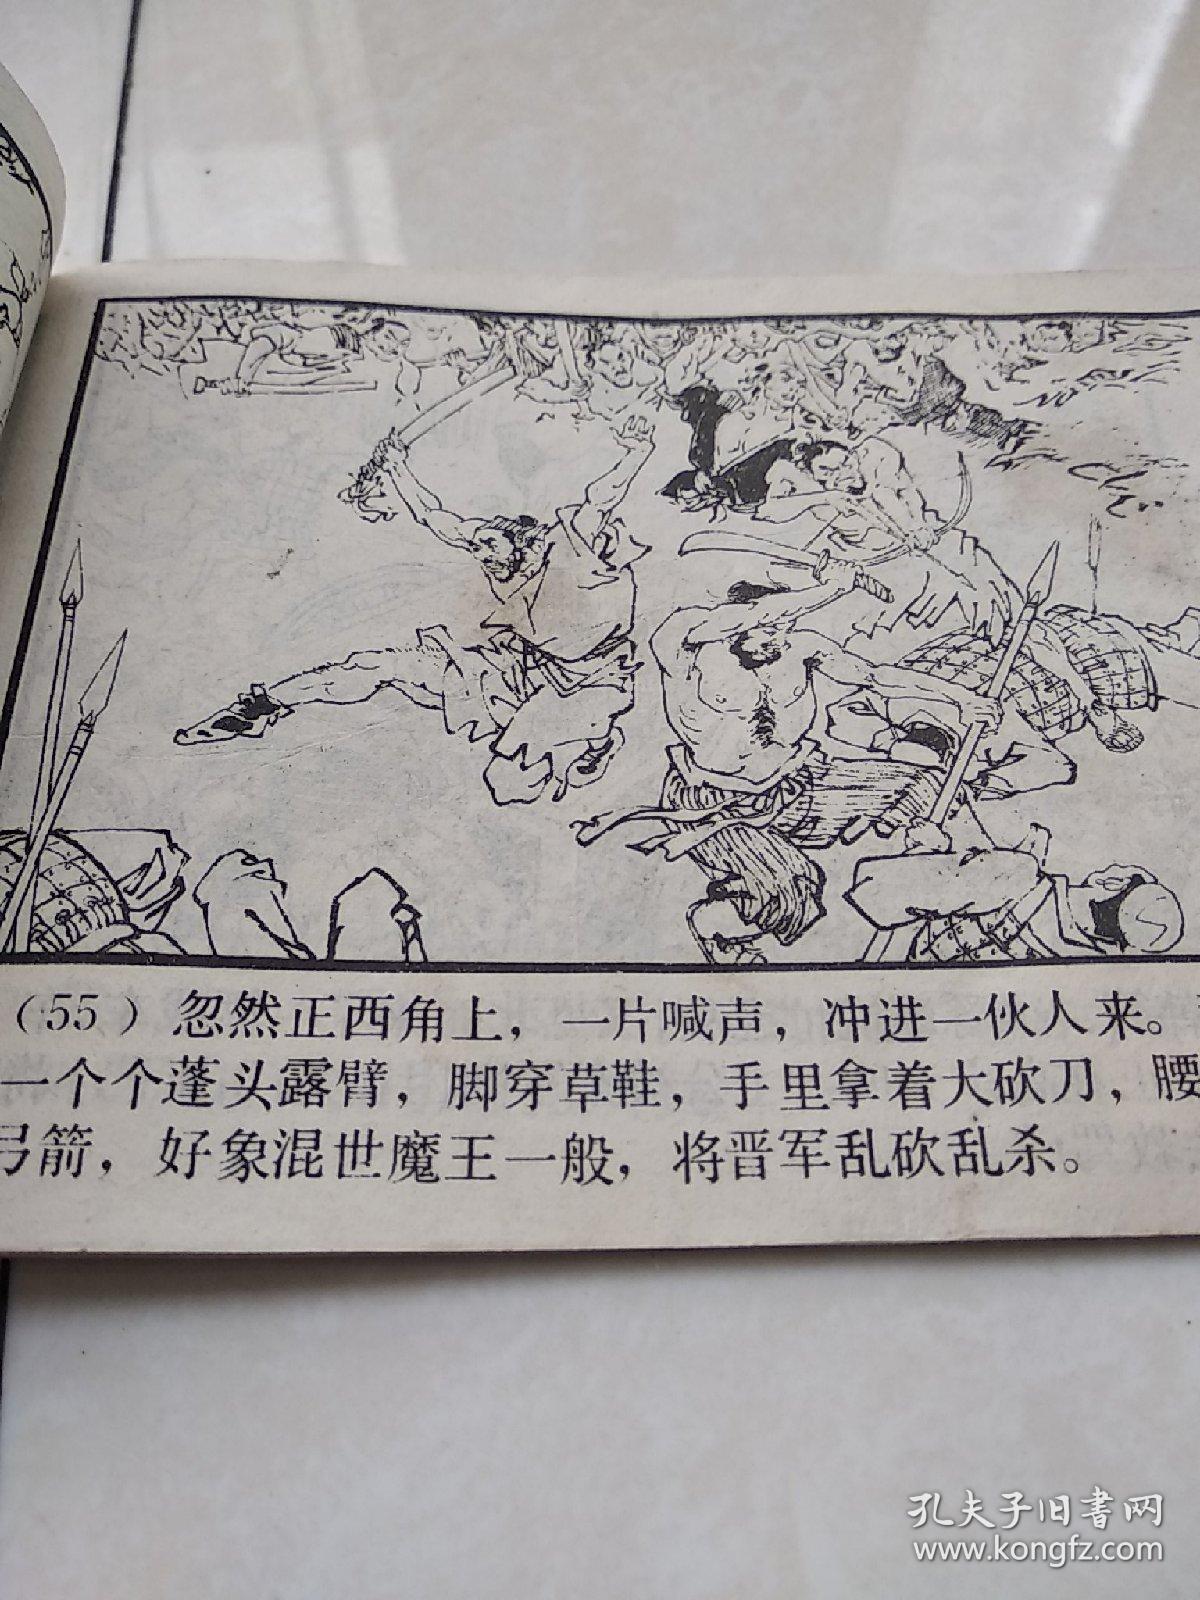 (55) 忽然正西角上，一片喊声，冲进一伙人来。
一个个蓬头露臂，脚穿草鞋，手里拿着大砍刀，腰
弓箭，好象混世魔王一般，将晋军乱砍乱杀。
孔夫子旧书网
www.kongfz.com